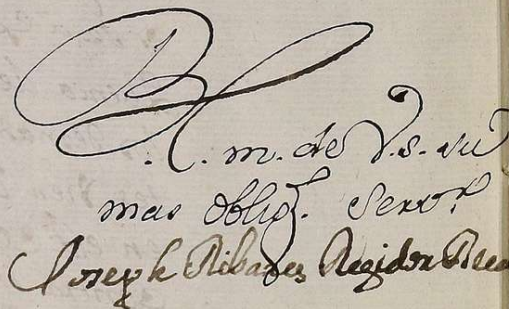 B. l. m. de V.s. su
mas oblig. Servr.
Joseph Ribases Regidor